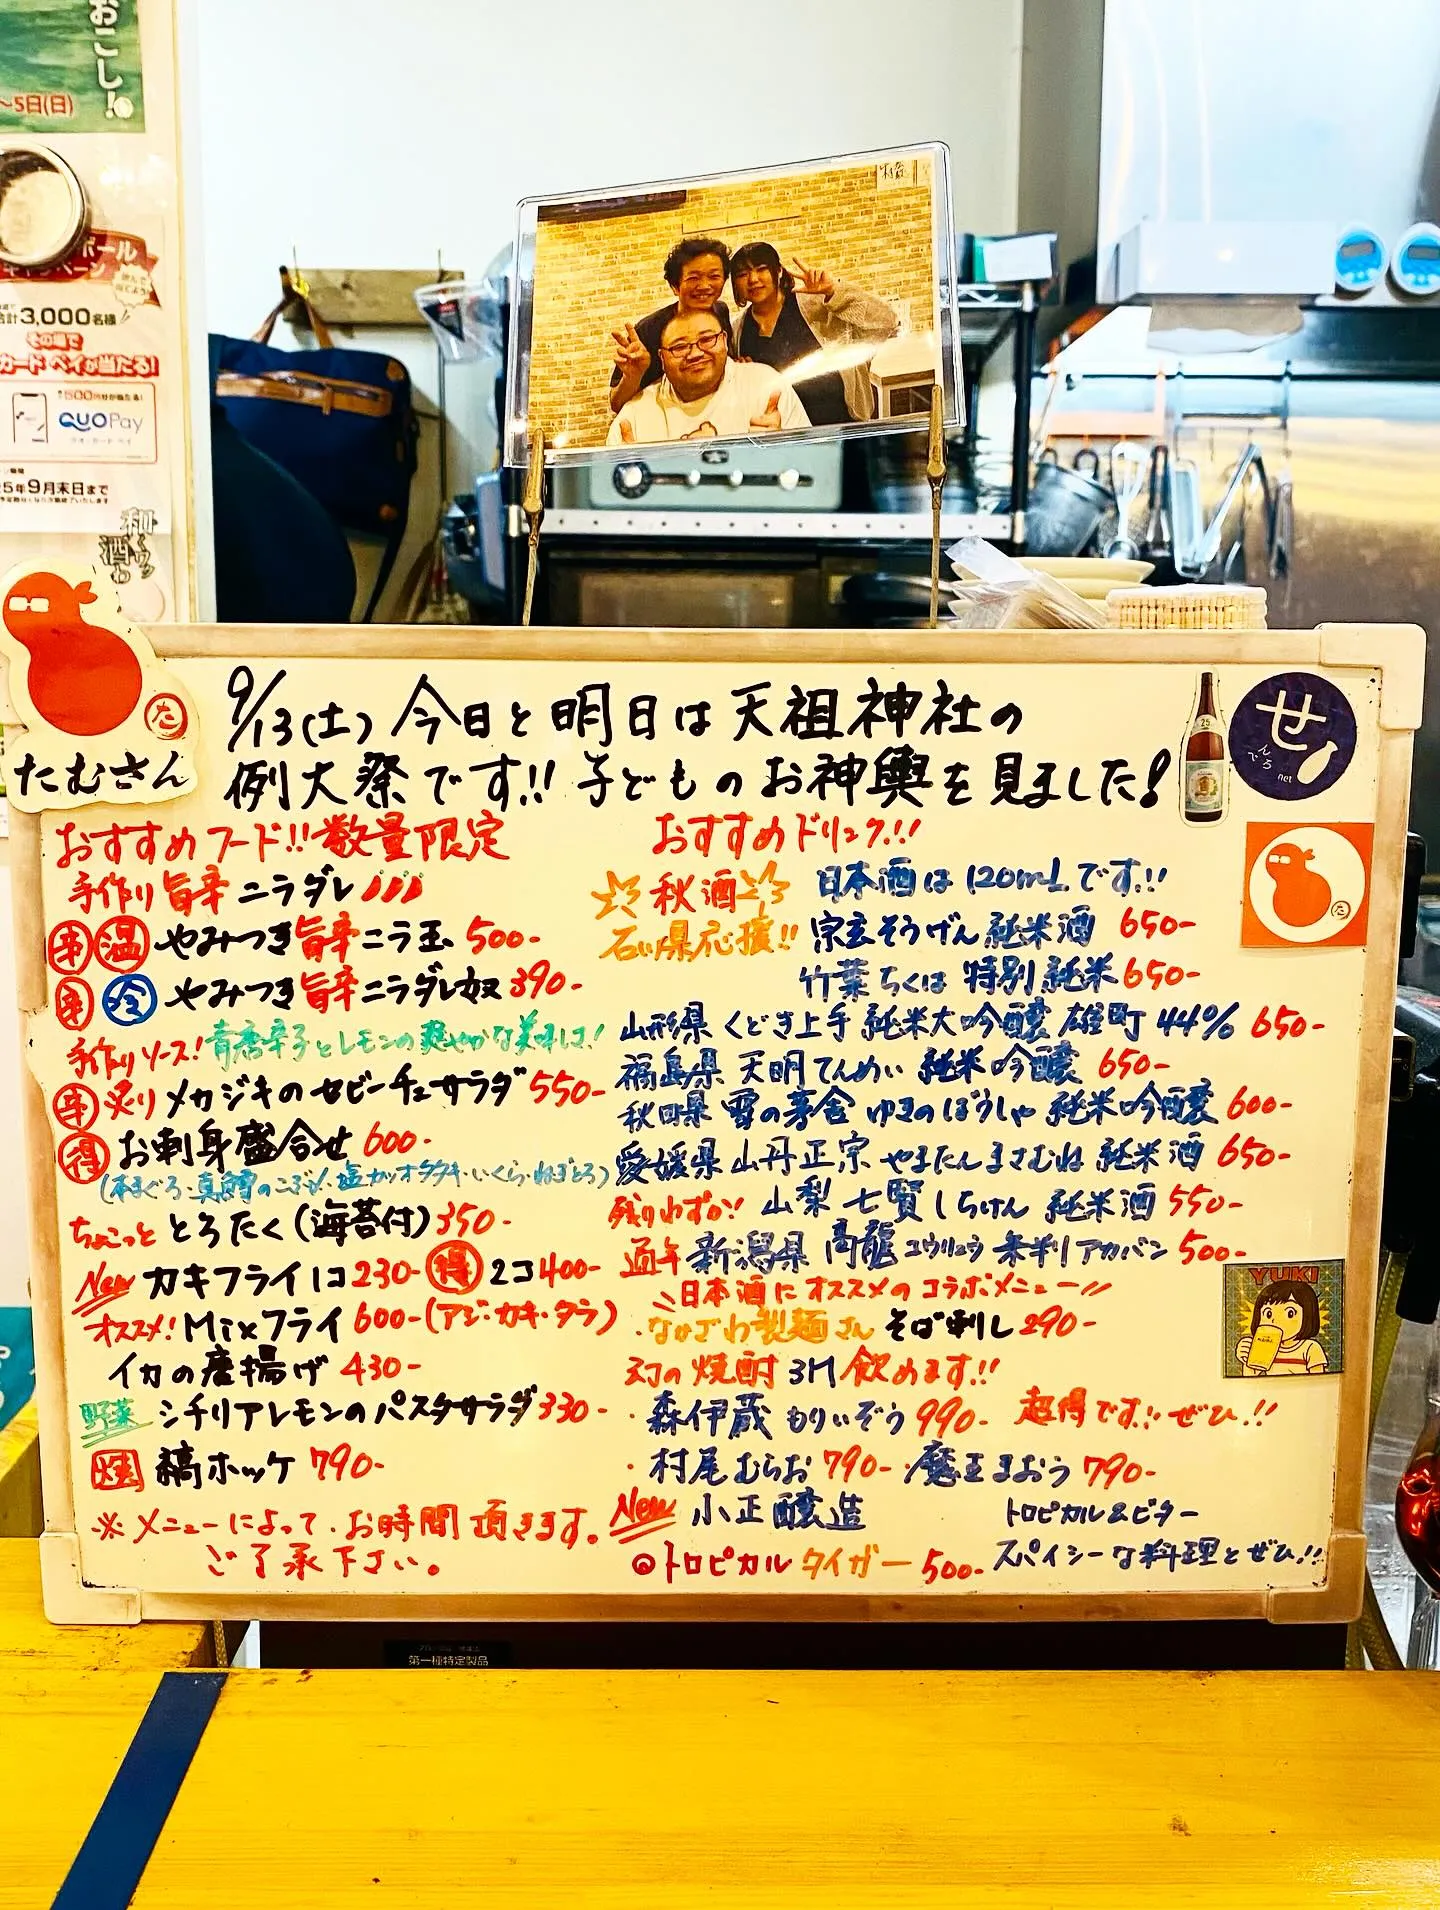 おこし!
〜5日(日)
合計3,000名様
その場で
QUOカード ペイが当たる!
QUO Pay
9月末日まで
た
たむさん
9/13(土) 今日と明日は天祖神社の
例大祭です!! 子どものお神輿を見ました!
せ
んべろ
net
おすすめフード!! 数量限定
手作り旨辛ニラダレ
辛 温 やみつき旨辛ニラ玉 500-
辛 冷 やみつき旨辛ニラダレ奴 390-
手作りソース! 青唐辛子とレモンの爽やかな美味しさ!
辛 炙りメカジキのセビーチェサラダ 550-
得 お刺身盛合せ 600-
(本まぐろ・真鯛のこぶ〆・塩カツオタタキ・いくら・ねぎとろ)
ちょこっと とろたく(海苔付) 350-
New カキフライ1コ 230- 得 2コ 400-
オススメ! Mixフライ 600-(アジ・カキ・タラ)
イカの唐揚げ 430-
野菜 シチリアレモンのパスタサラダ 330-
縞ホッケ 790-
※メニューによって、お時間頂きます。
ご了承下さい。
おすすめドリンク!!!
秋酒 日本酒は120mLです!!!
石川県応援!! 宗玄そうげん 純米酒 650-
竹葉ちくは 特別純米 650-
山形県 くどき上手 純米大吟醸 雄町 44% 650-
福島県 天明てんめい 純米吟醸 650-
秋田県 雪の茅舎 ゆきのぼうしゃ 純米吟醸 600-
愛媛県 山丹正宗 やまたんまさむね 純米酒 650-
残りわずか!! 山梨 七賢しちけん 純米酒 550-
通年 新潟県 高龍コウリュウ 辛判アカバン 500-
日本酒にオススメのコラボメニュー
・ながさわ製麺さん そば刺し 290-
幻の焼酎 3M 飲めます!!
・森伊蔵 もりいぞう 990- 超得です!! ぜひ!!
・村尾むらお 790- ・魔王まおう 790-
New 小正醸造 トロピカル&ビター
トロピカルタイガー 500- スパイシーな料理とぜひ!!
YUKI
第一種特定製品